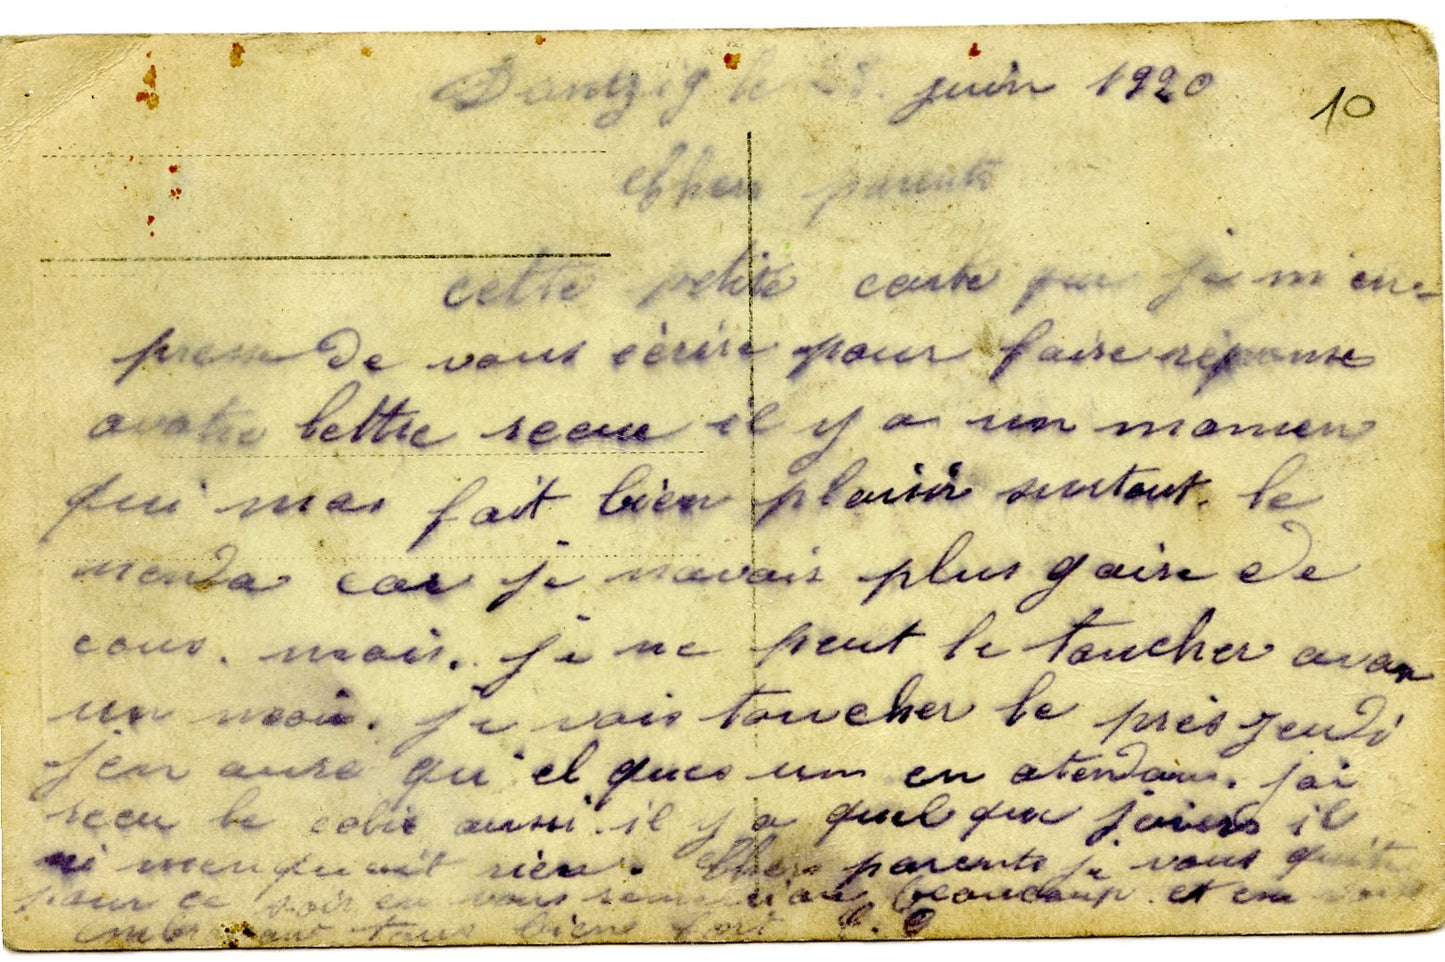 Dantzig le 28. juin 1920
10
Chers parents
cette petite carte que je m'em-
presse de vous écrire pour faire réponse
avotre lettre recue il y a un momen
qui mas fait bien plaisir surtout. le
menda car je navais plus gaire de
cous. mais. je ne peut le toucher avan
un mois. je vais toucher le près jeudi
j'en aure qu'el ques um en atendan. jai
recu le colie aussi. il y a quel que jours il
ni menquait rien. Chers parents je vous quite
pour ce soir en vous remerciant beaucoup et en vous
embrassant tous bien fort